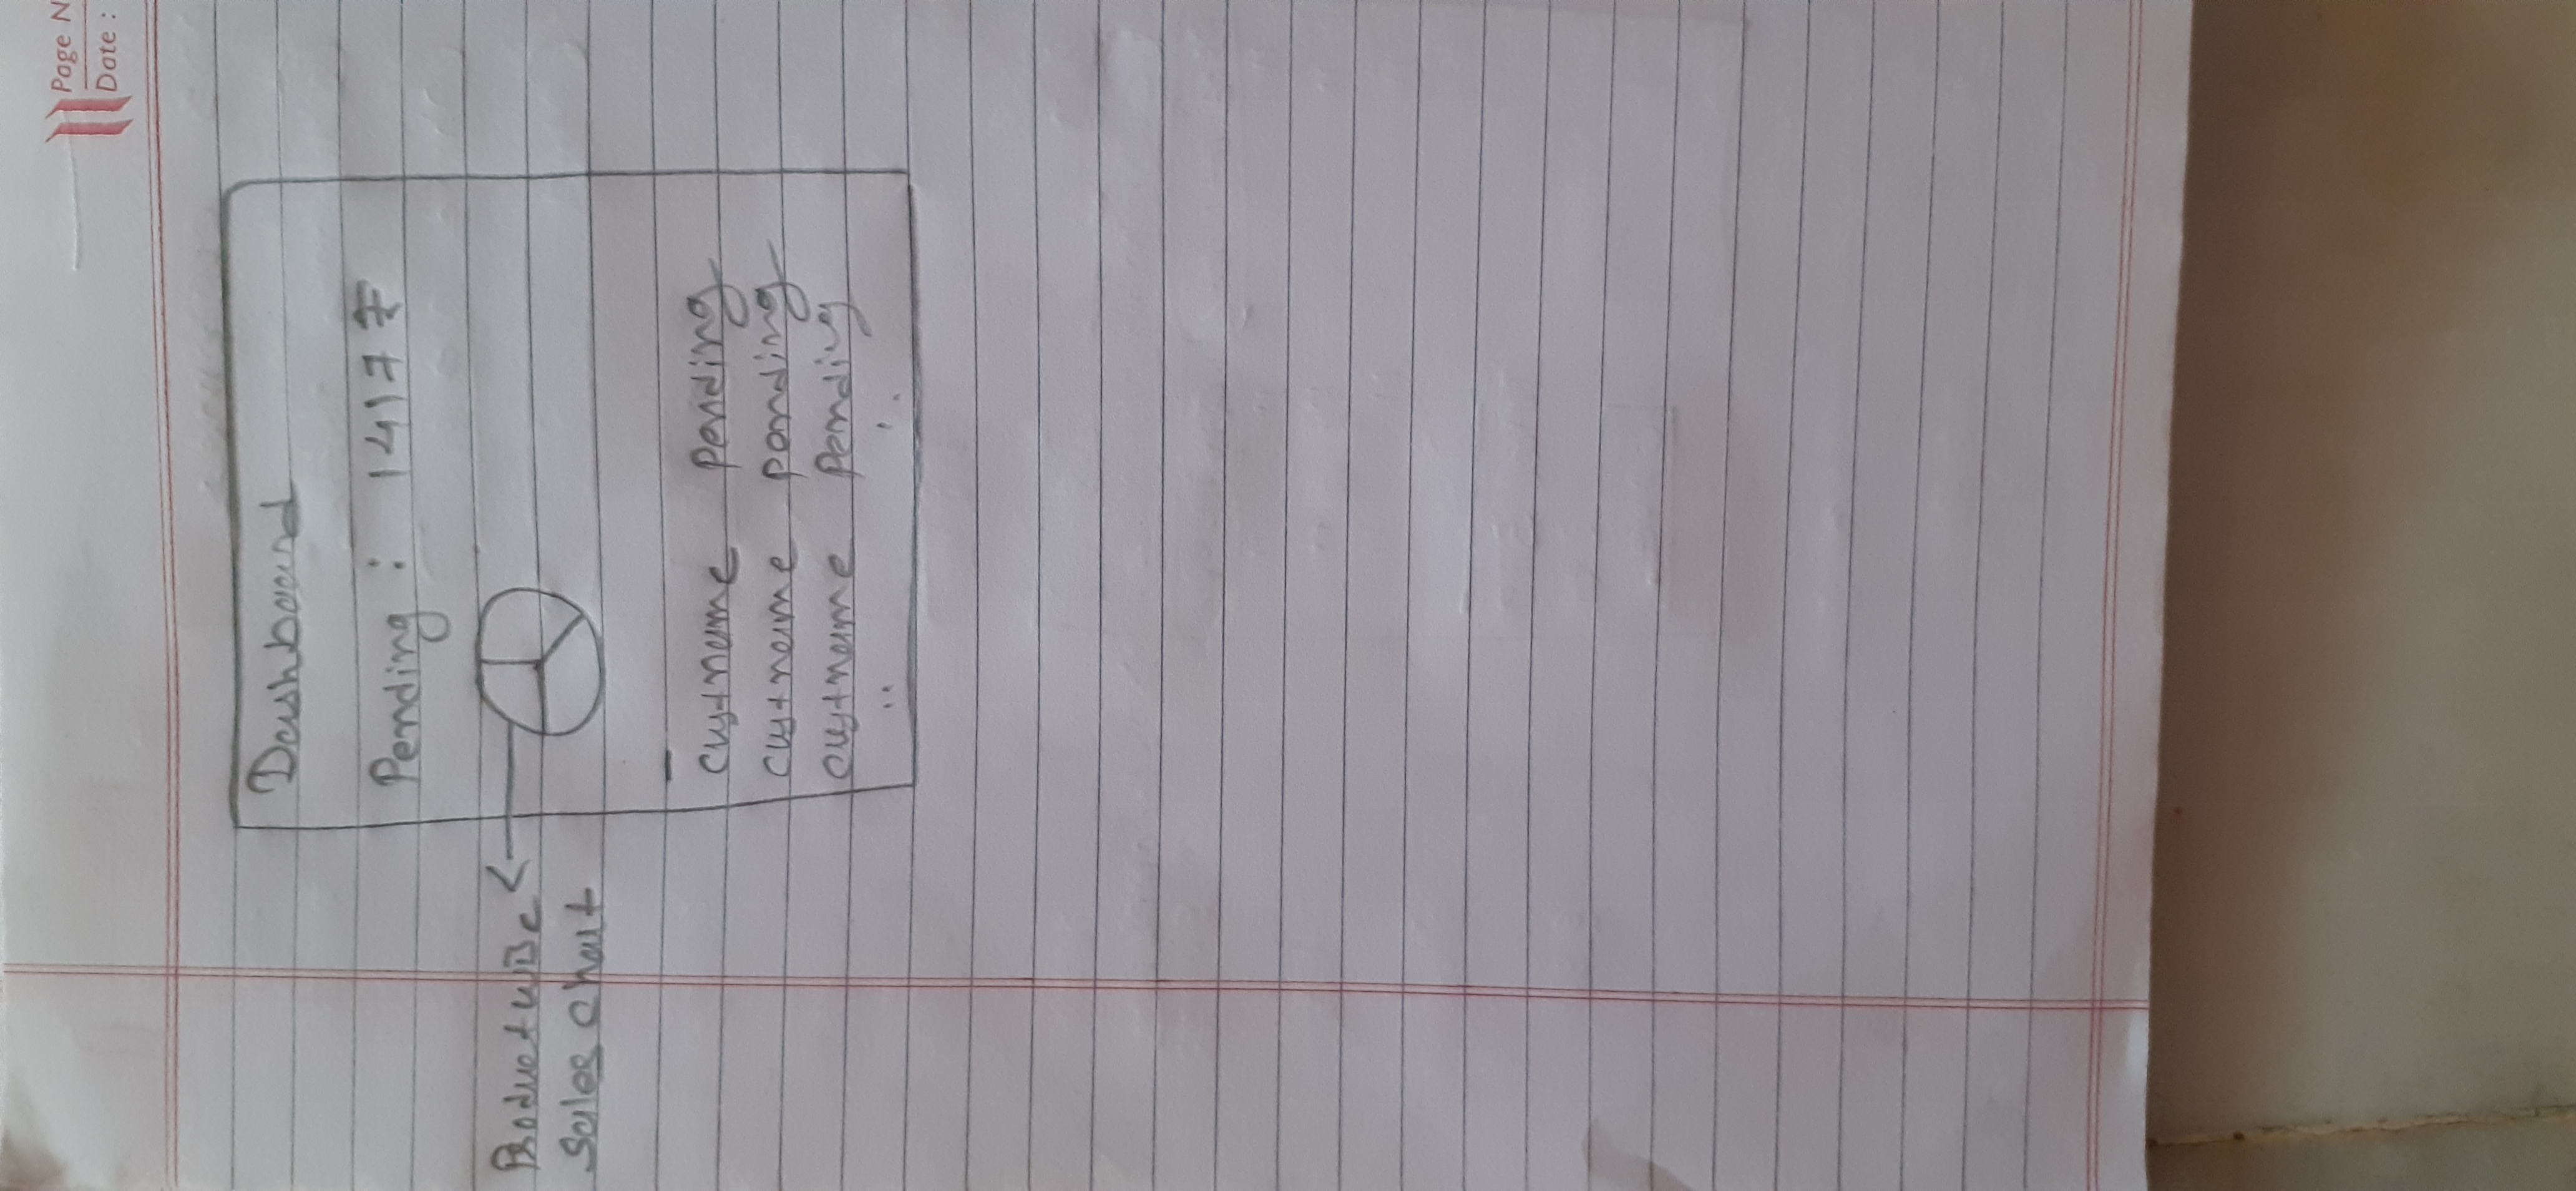 Page N
Date :
Dashboard
Pending : 1417 ₹
Productwise
Sales Chart
custname pending
custname pending
custname Pending